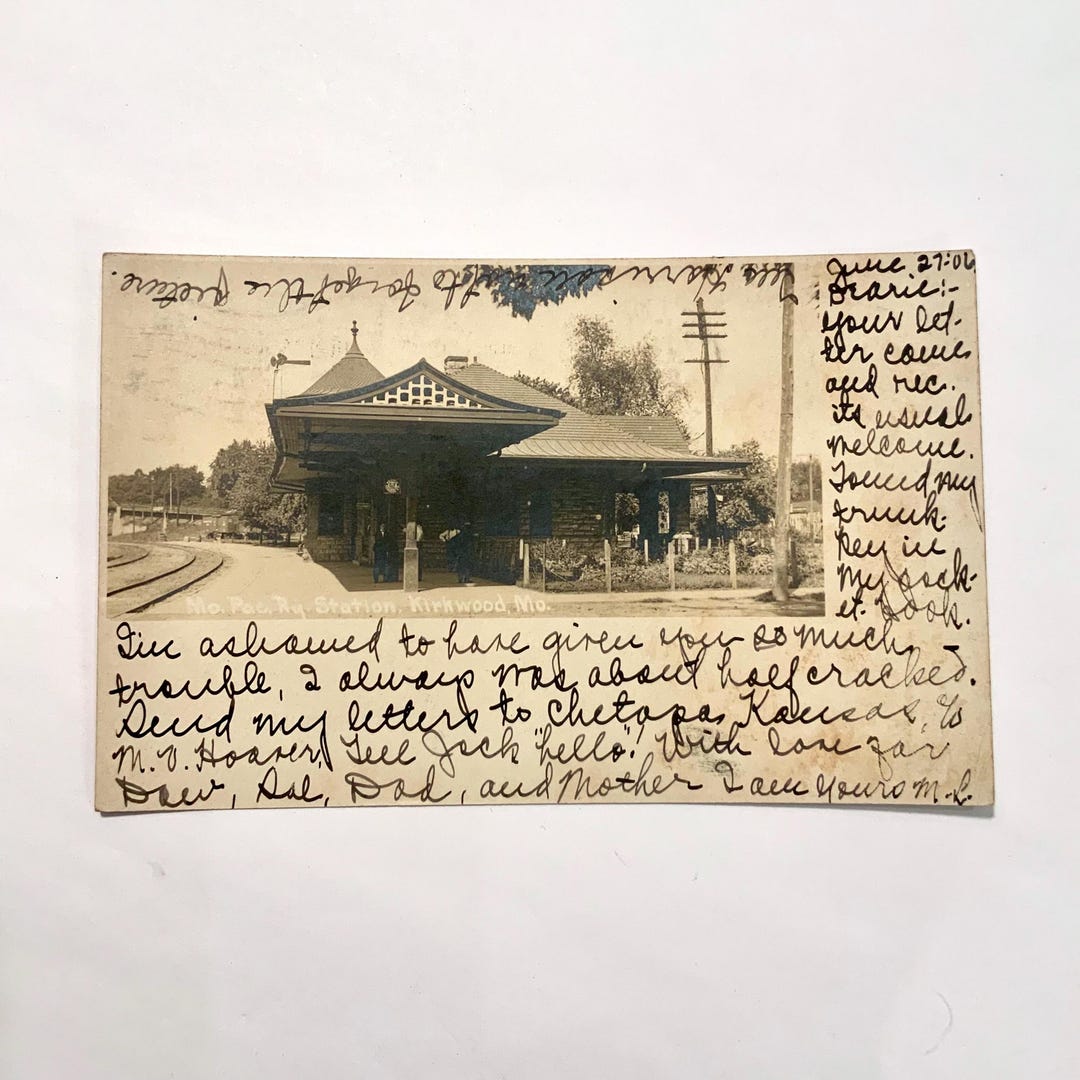 June, 27-06
Dearie:-
your let-
ter came
and rec.
its usual
welcome.
Found my
trunk-
key in
my pock-
et. Look.
I'm ashamed to have given you so much
trouble, I always was about half cracked.
Send my letters to Chetopa, Kansas, c/o
M. V. Hoover, Tell Jack "hello". With love for
Dow, Sal, Dad, and Mother I am yours M. L.
Tell Harrison not to forget the picture.
Mo. Pac. Ry. Station, Kirkwood, Mo.